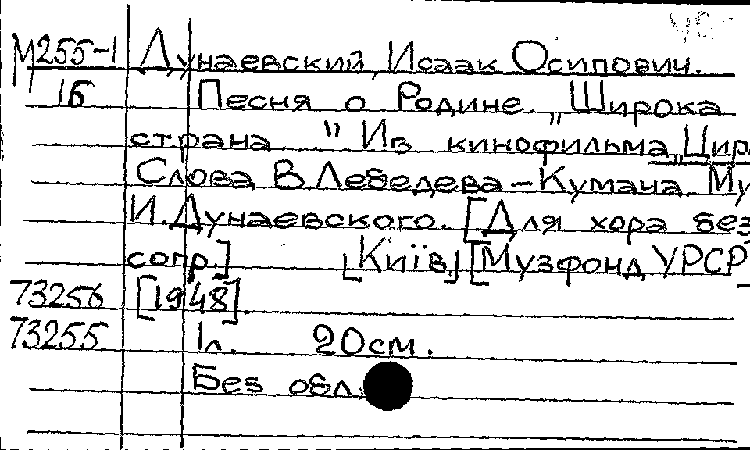 М255-1 Дунаевский, Исаак Осипович.
16 Песня о Родине. „Широка
страна " Из кинофильма „Цир
Слова В. Лебедева-Кумача. Му
И. Дунаевского. [Для хора без
сопр.] [Київ] [Музфонд УРСР]
73256 [1948].
73255 1 л. 20 см.
Без обл.